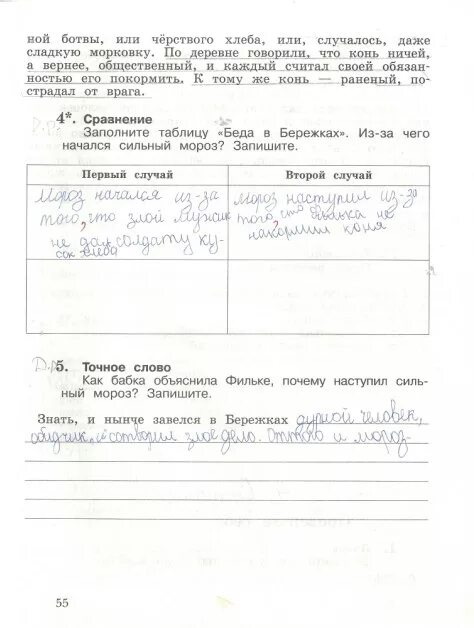 ной ботвы, или чёрствого хлеба, или, случалось, даже
сладкую морковку. По деревне говорили, что конь ничей,
а вернее, общественный, и каждый считал своей обязан-
ностью его покормить. К тому же конь — раненый, по-
страдал от врага.
4*. Сравнение
Заполните таблицу «Беда в Бережках». Из-за чего
начался сильный мороз? Запишите.
Первый случай
Мороз начался из-за
того, что злой мужик
не дал солдату ку-
сок хлеба
Второй случай
Мороз наступил из-за
того, что Филька не
накормил коня
Д.р.
5. Точное слово
Как бабка объяснила Фильке, почему наступил силь-
ный мороз? Запишите.
Знать, и нынче завелся в Бережках дурной человек,
обидчик, и сотворил злое дело. Оттого и мороз-
55